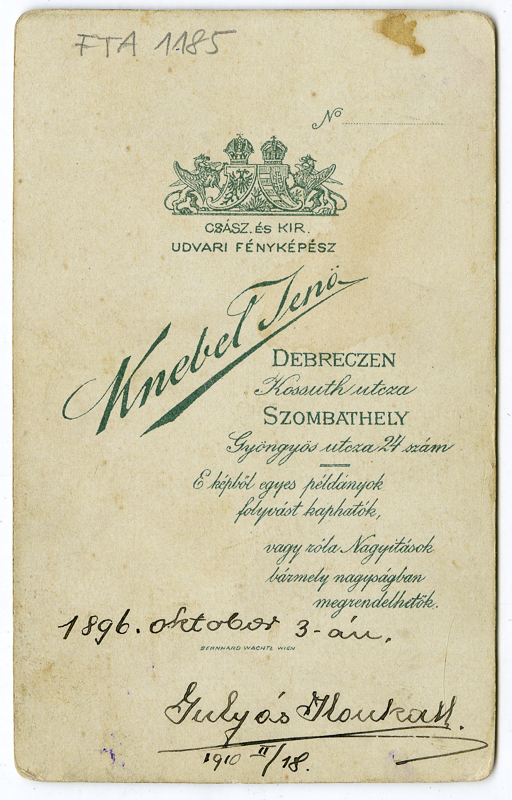 FTA 1185
No
CSÁSZ. ÉS KIR.
UDVARI FÉNYKÉPÉSZ
Knebel Jenö
DEBRECZEN
Kossuth utcza
SZOMBATHELY
Gyöngyös utcza 24 szám
E képből egyes példányok
folyvást kaphatók,
vagy róla Nagyitások
bármely nagyságban
megrendelhetők.
1896. oktober 3-án.
BERNHARD WACHTL WIEN
Gulyás
1910 II/18.